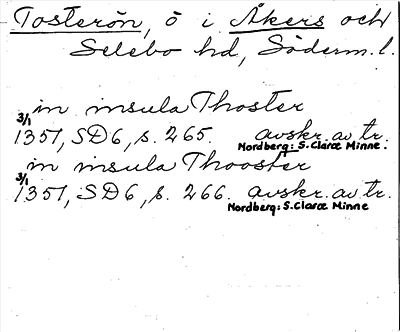 Tosterön, ö i Åkers och
Selebo hd, Söderm. l.
in insula Thoster
3/1 1351, SD6, s. 265. avskr. av tr.
Nordberg: S. Claræ Minne.
in insula Thooster
3/1 1351, SD6, s. 266. avskr. av tr.
Nordberg: S. Claræ Minne